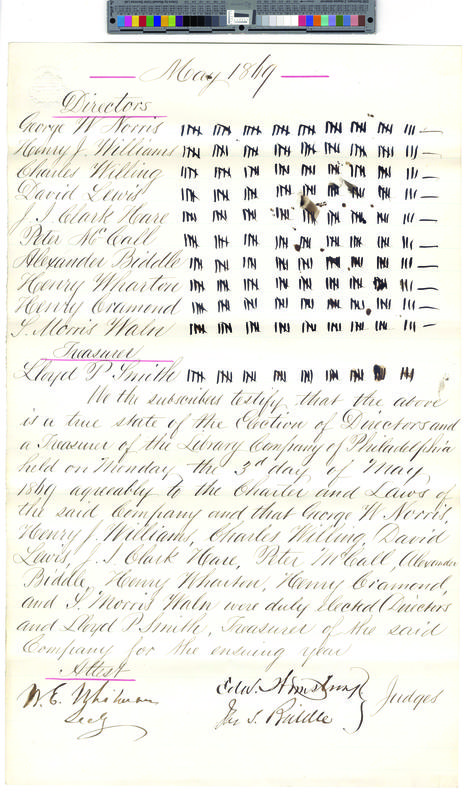 May 1869
Directors
George W Norris
Henry J. Williams
Charles Willing
David Lewis
J. I. Clark Hare
Peter McCall
Alexander Biddle
Henry Wharton
Henry Cramond
S. Morris Waln
Treasurer
Lloyd P. Smith
We the subscribers testify that the above
is a true state of the Election of Directors and
a Treasurer of the Library Company of Philadelphia
held on Monday the 3d day of May
1869 agreeably to the Charter and Laws of
the said Company and that George W Norris,
Henry J. Williams, Charles Willing, David
Lewis, J. I. Clark Hare, Peter McCall, Alexander
Biddle, Henry Wharton, Henry Cramond,
and S. Morris Waln were duly elected Directors
and Lloyd P. Smith, Treasurer of the said
Company for the ensuing year
Attest
Edw. Armstrong
Judges
S. Biddle
Secy